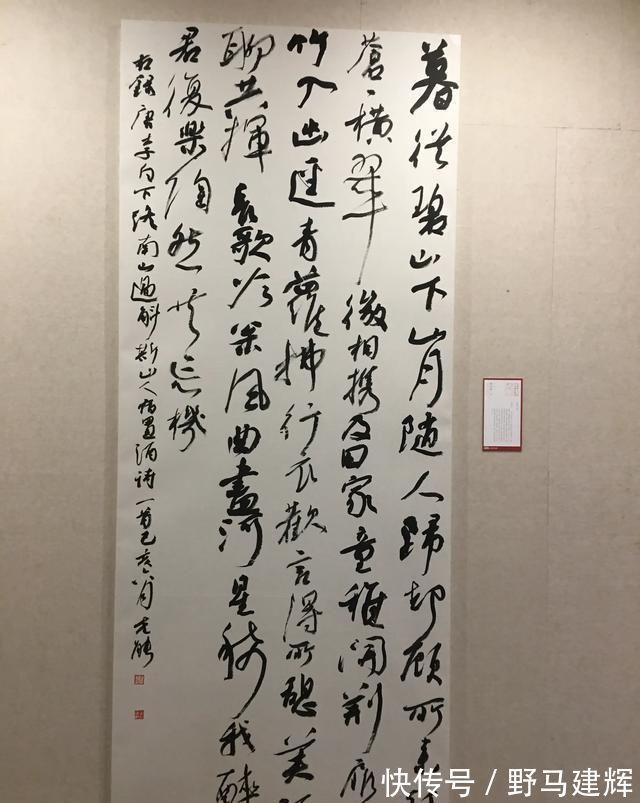 暮從碧山下山月隨人歸却顧所来
蒼〻橫翠微相携及田家童稚開荆扉
竹入幽徑青蘿拂行衣歡言得所憩美酒
聊共揮長歌吟松風曲盡河星稀我醉
君復樂陶然共忘機
右錄唐李白下終南山過斛斯山人宿置酒詩一首己亥八月
快传号／野马建辉